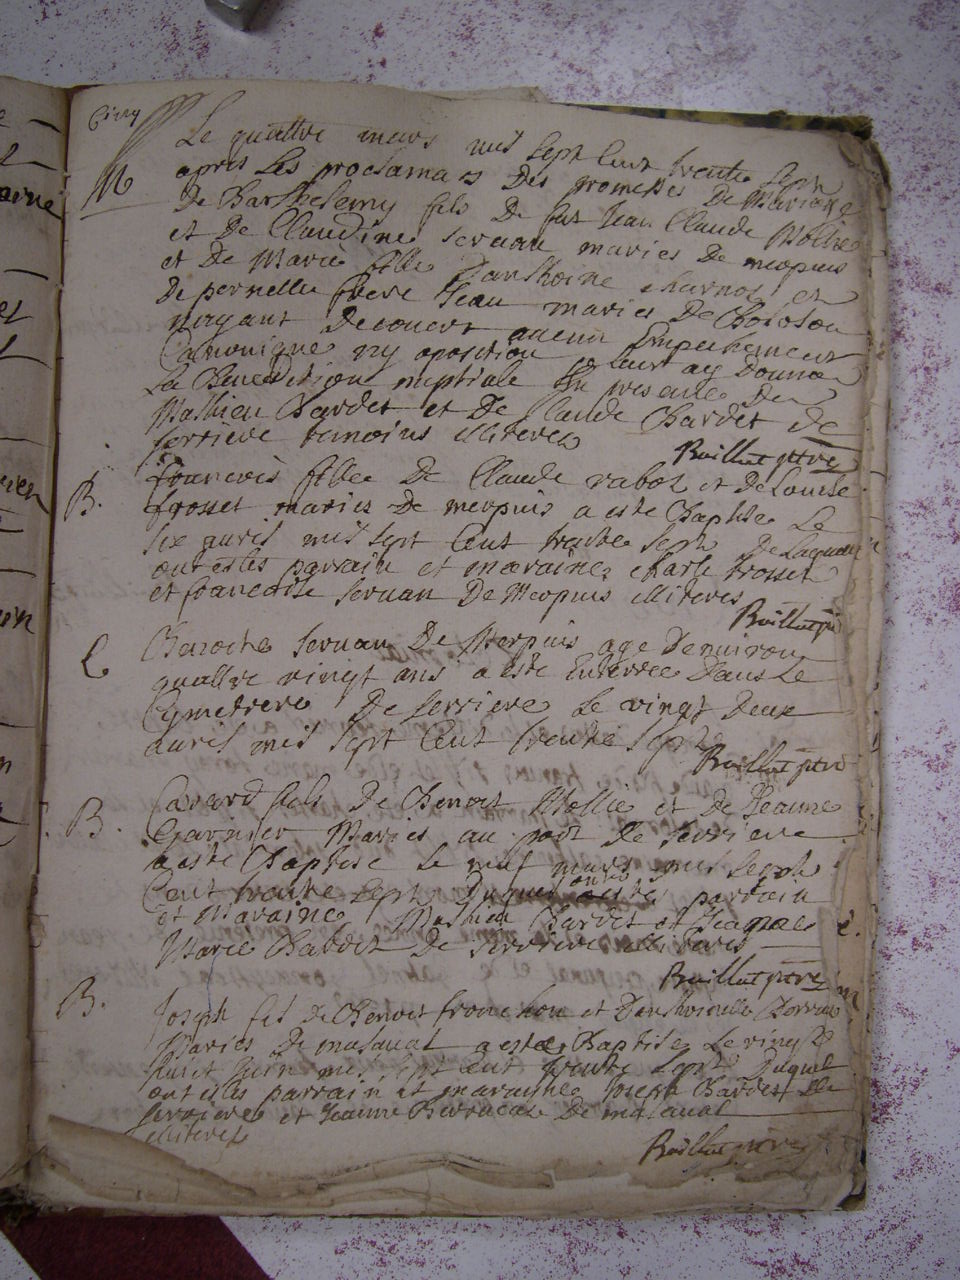 Cinq
M
Le quattre mars mil sept cent trente sept
apres les proclama͠s des promesses De Mariage
De Barthelemy fils De fut Jean Claude Mollie
et De Claudine servan maries De merpuis
et De Marie fille Danthoine charnot et
De pernelle frere Jean maries De Boloson
nayant Decouvert aucun Empechement
Canonique ny oposition leur ay Donne
La Benediction nuptiale En presence De
Mathieu Bardet et De Claude Bardet de
serriere temoins illiteres
Ruillat ptre
B.
francois fille De Claude rabot et De Louise
frosset maries De merpuis a este Baptise Le
six avril mil sept cent trente sept De
ont estes parrain et maraine charle frosset
et francoise servan De Merpuis illiteres
Ruillat ptre
servan De Merpuis age Denviron
quattre vingt ans a este Enterree Dans Le
Cymetiere De serriere Le vingt Deux
avril mil sept Cent trente sept
Ruillat ptre
B.
fils de Benoit Mollie et de Jeanne
Garnier Maries au de serriere
a este Baptise Le neuf mars mil sept
Cent trente sept Duquel ont este parrain
et Maraine Mathieu Bardet et
Marie De serriere illiteres
Ruillat ptre
B.
Joseph fils de Benoit fronchon et Danthoinette
Maries De malaval a este Baptise Le vingt
huict Juin mil sept cent trente sept Duquel
ont estes parrain et maraine Joseph Bardet De
serriere et Jeanne De malaval
illiteres
Ruillat ptre